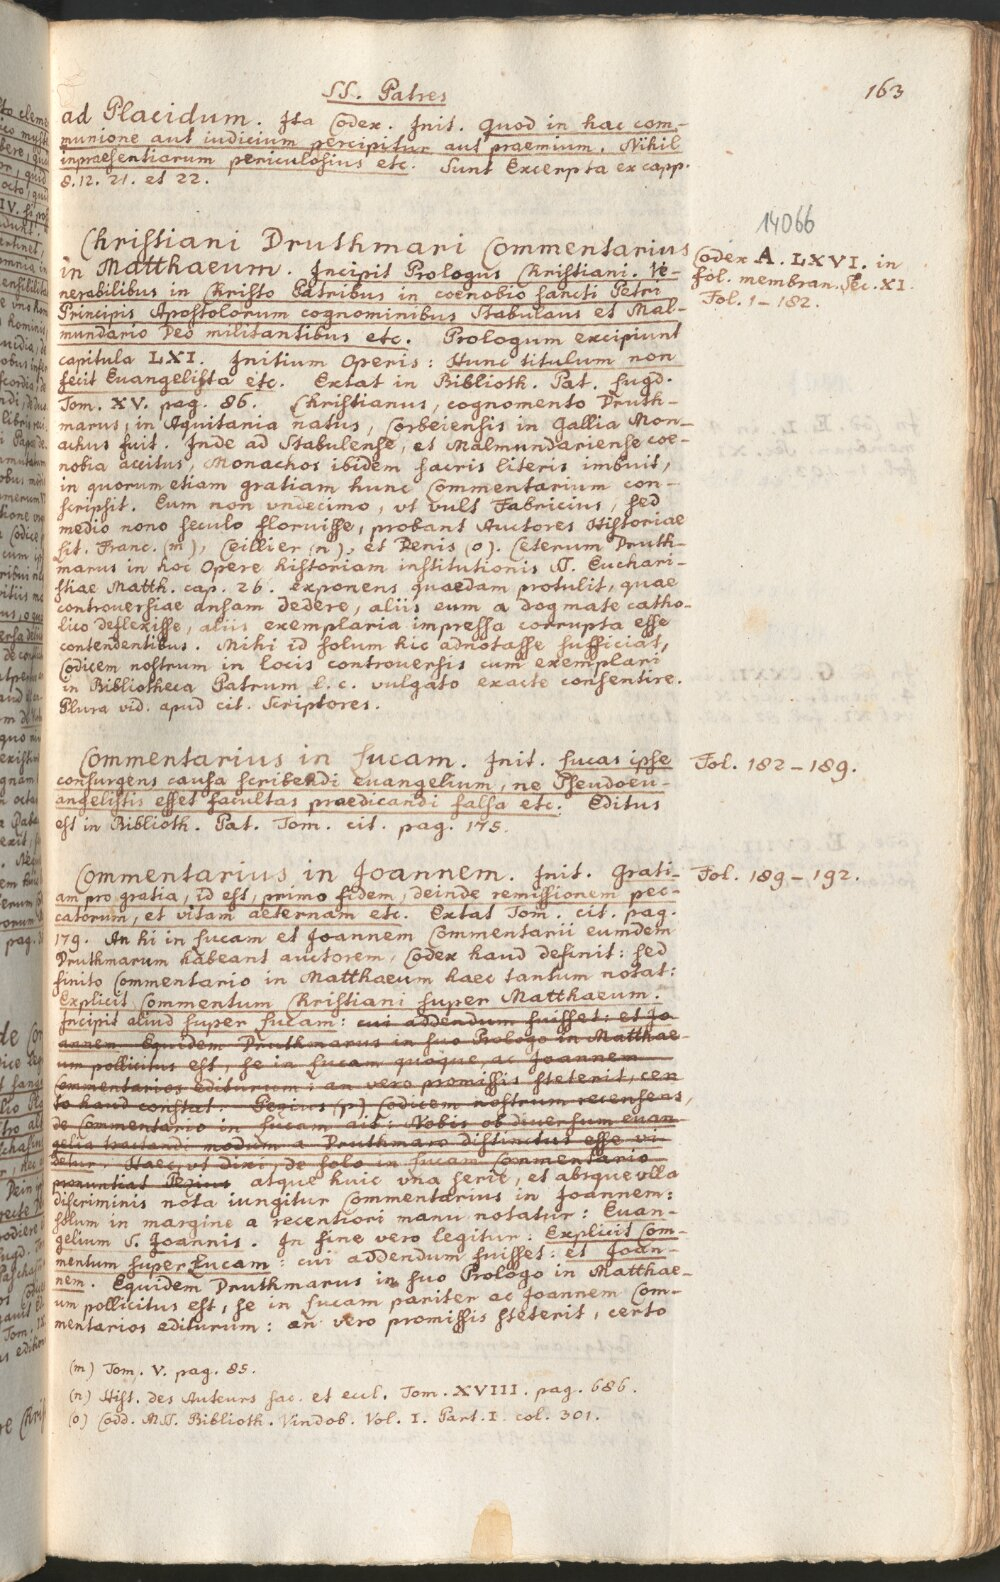 SS. Patres
163
ad Placidum. Ita Codex. Init. Quod in hac com-
munione aut iudicium percipitur aut praemium. Nihil
inpraesentiarum periculosius etc. Sunt Excerpta ex capp.
8. 12. 21. et 22.
14066
Christiani Druthmari Commentarius
in Matthaeum. Incipit Prologus Christiani. Ve-
nerabilibus in Christo Patribus in coenobio sancti Petri
Principis Apostolorum cognominibus Stabulaus et Mal-
mundario Deo militantibus etc. Prologum excipiunt
capitula LXI. Initium Operis: Hunc titulum non
fecit Euangelista etc. Extat in Biblioth. Pat. Lugd.
Tom. XV. pag. 86. Christianus, cognomento Druth-
marus, in Aquitania natus, Corbeiensis in Gallia Mon-
achus fuit. Inde ad Stabulense, et Malmundariense coe-
nobia accitus, Monachos ibidem sacris literis imbuit,
in quorum etiam gratiam hunc Commentarium con-
scripsit. Eum non vndecimo, vt vult Fabricius, sed
medio nono seculo floruisse, probant Auctores Historiae
Lit. Franc. (m), Ceillier (n), et Denis (o). Ceterum Druth-
marus in hoc Opere historiam institutionis SS. Euchari-
stiae Matth. cap. 26. exponens quaedam protulit, quae
controuersiae ansam dedere, aliis eum a dogmate catho-
lico deflexisse, aliis exemplaria impressa corrupta esse
contendentibus. Mihi id solum hic adnotasse sufficiat,
Codicem nostrum in locis controuersis cum exemplari
in Bibliotheca Patrum l. c. vulgato exacte consentire.
Plura vid. apud cit. Scriptores.
Codex A. LXVI. in
fol. membran. Sec. XI.
Fol. 1-182.
Commentarius in Lucam. Init. Lucas ipse
consurgens causa scribendi euangelium, ne Pseudoeu-
angelistis esset facultas praedicandi falsa etc. Editus
est in Biblioth. Pat. Tom. cit. pag. 175.
Fol. 182-189.
Commentarius in Joannem. Init. Grati-
am pro gratia, id est, primo fidem, deinde remissionem pec-
catorum, et vitam aeternam etc. Extat Tom. cit. pag.
179. An hi in Lucam et Joannem Commentarii eumdem
Druthmarum habeant auctorem, Codex haud definit: sed
finito Commentario in Matthaeum haec tantum notat:
Explicit Commentum Christiani super Matthaeum.
Incipit aliud super Lucam: cui addendum fuisset: et Jo
annem. Equidem Druthmarus in suo Prologo in Matthae-
um pollicitus est, se in Lucam quoque, ac Joannem
Commentarios editurum: an vero promissis steterit, cer
to haud constat. Pezius (p) Codicem nostrum recensens,
de Commentario in Lucam ait: Nobis ob diuersum euan
gelia tractandi modum a Druthmaro distinctus esse vi
detur. Haec, vt dixi, de solo in Lucam Commentario
pronuntiat Pezius atque huic vna serie, et absque vlla
discriminis nota iungitur Commentarius in Joannem:
solum in margine a recentiori manu notatur: Euan-
gelium S. Joannis. In fine vero legitur: Explicit Com-
mentum super Lucam: cui addendum fuisset: et Joan-
nem. Equidem Druthmarus in suo Prologo in Matthae-
um pollicitus est, se in Lucam pariter ac Joannem Com-
mentarios editurum: an vero promissis steterit, certo
Fol. 189-192.
(m) Tom. V. pag. 85.
(n) Hist. des Auteurs sac. et eccl. Tom. XVIII. pag. 686.
(o) Codd. MSS. Biblioth. Vindob. Vol. I. Part. I. col. 301.